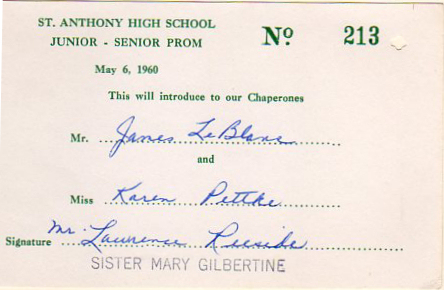 ST. ANTHONY HIGH SCHOOL
JUNIOR - SENIOR PROM
No. 213
May 6, 1960
This will introduce to our Chaperones
Mr. James LeBlanc
and
Miss Karen Pettke
Signature Mr. Lawrence Reeside
SISTER MARY GILBERTINE